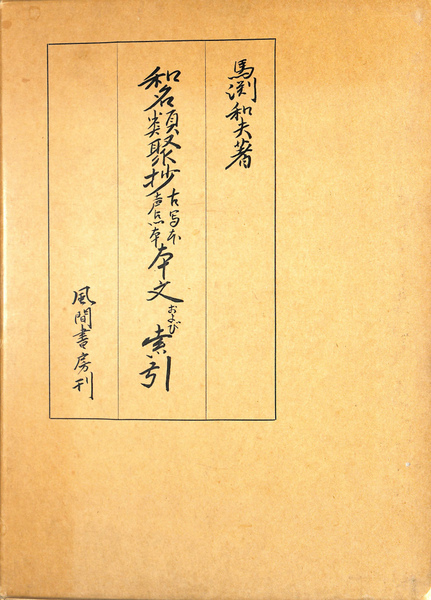 馬渕和夫著
和名類聚抄古写本声点本本文および索引
風間書房刊